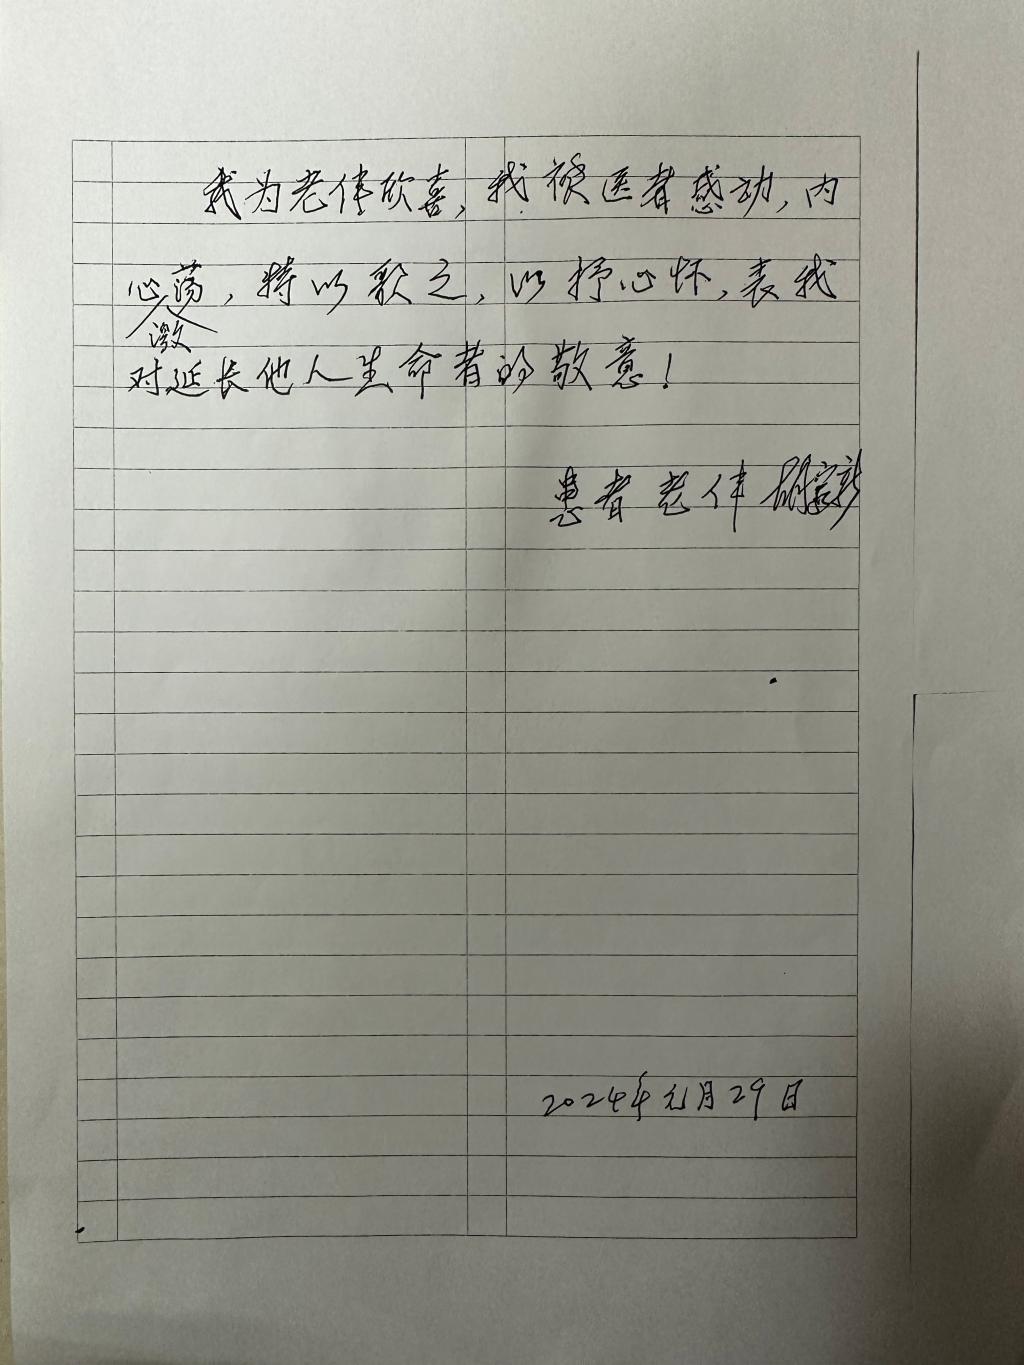 我为老伴欣喜，我被医者感动，内
心激荡，特以歌之，以抒心怀，表我
对延长他人生命者的敬意！
患者老伴 胡家新
2024年元月29日